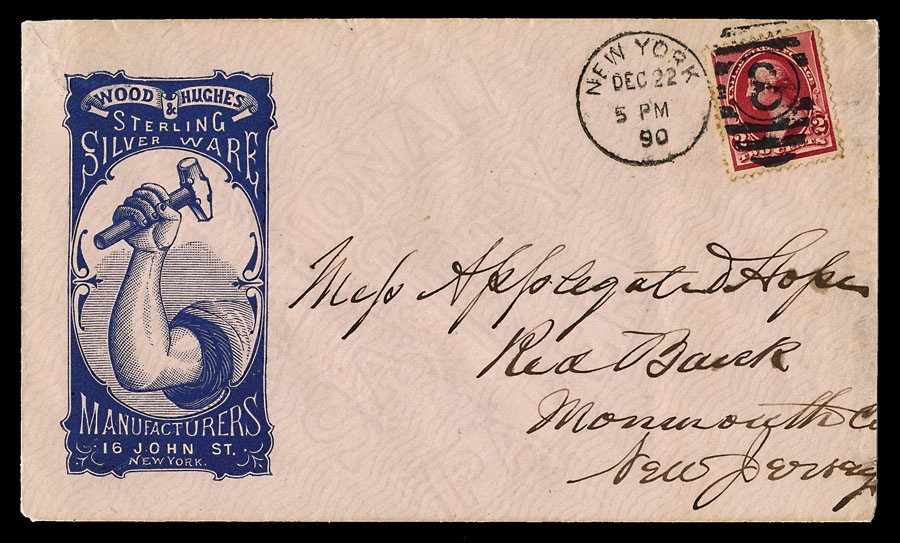 WOOD & HUGHES
STERLING
SILVER WARE
MANUFACTURERS
16 JOHN ST.
NEW YORK.
NEW YORK
DEC 22
5 PM
90
2
Mess Applegate & Hope
Red Bank
Monmouth Co
New Jersey